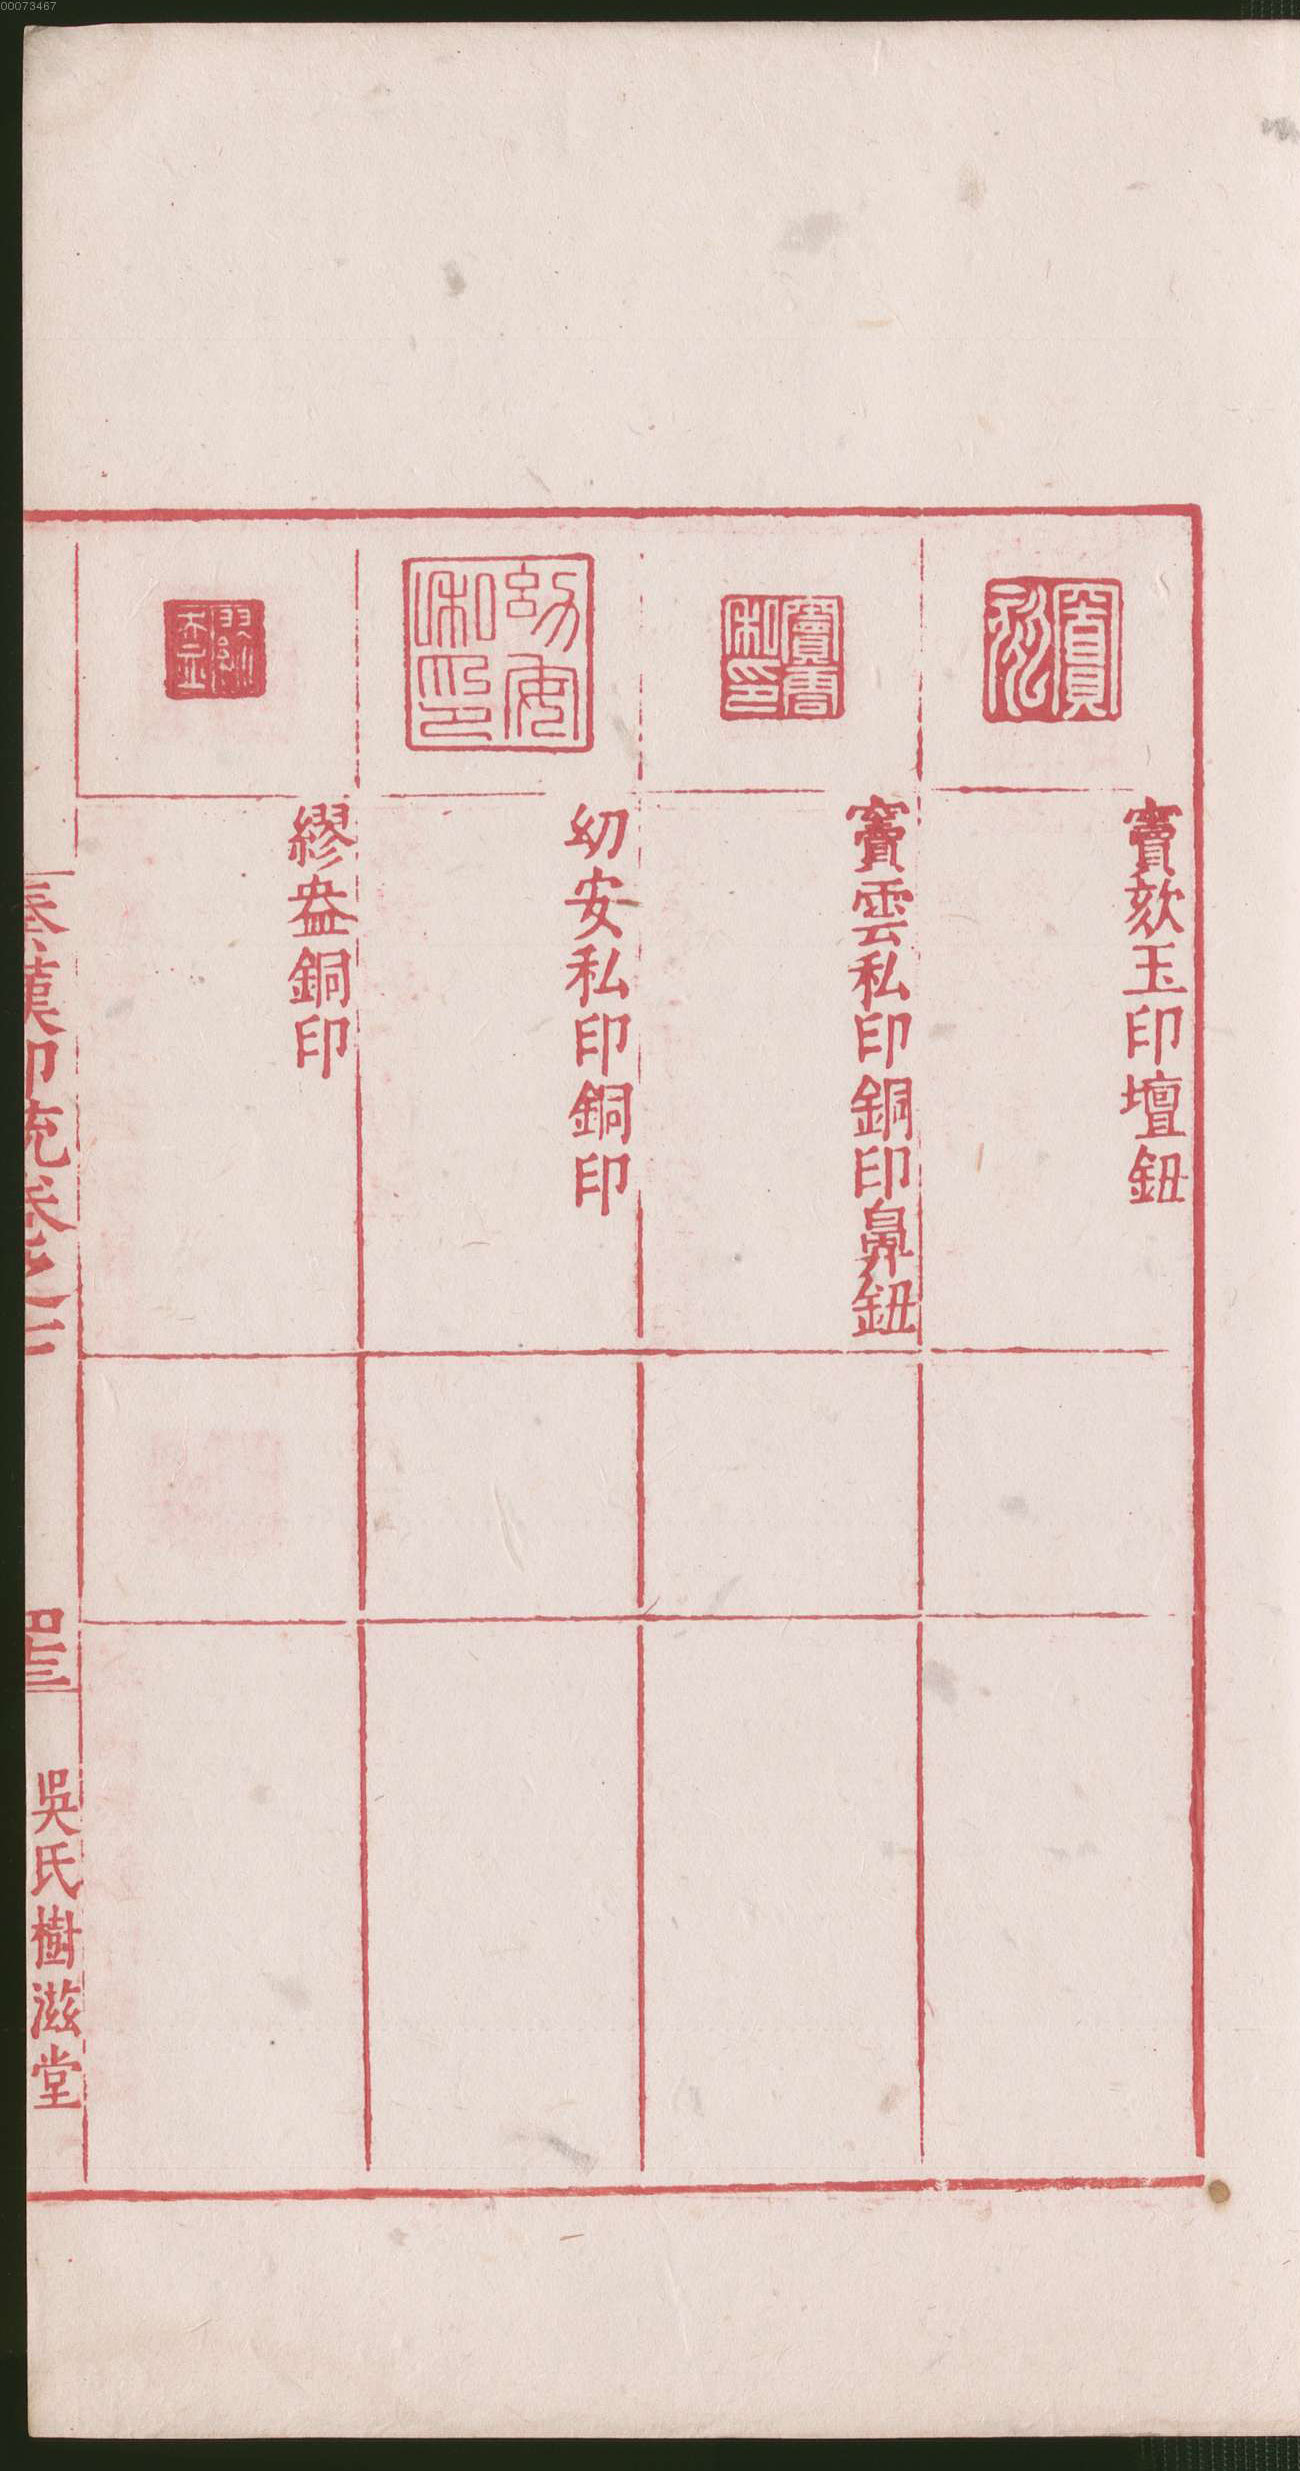 竇欬玉印壇鈕
竇雲私印銅印鼻鈕
幼安私印
幼安私印銅印
繆盎銅印
秦漢印統卷之二
吳氏樹滋堂
00073467